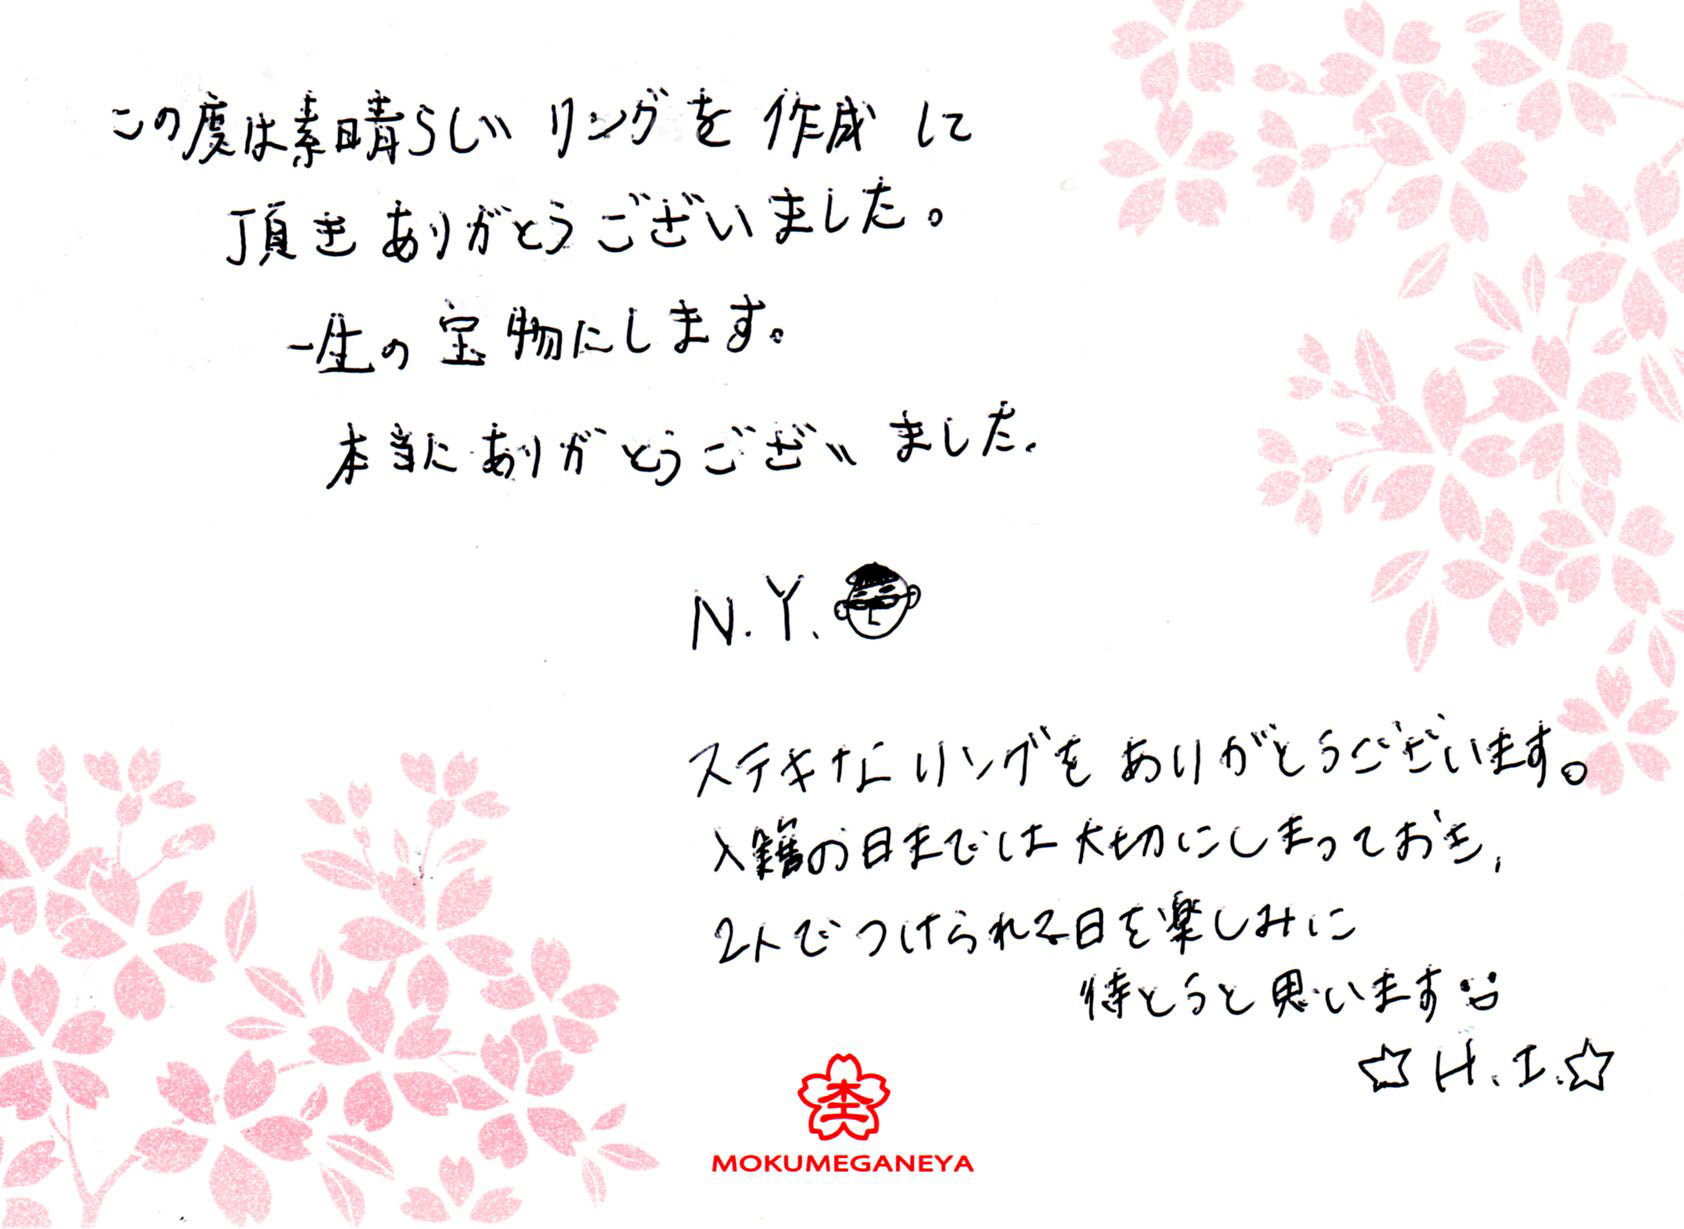 この度は素晴らしい リングを 作成 して
頂き ありがとうございました。
一生の 宝物にします。
本当に ありがとうございました.
N.Y.
ステキな リングを ありがとうございます。
入籍の日までは 大切にしまっておき,
2人で つけられる日を楽しみに
待とうと思います
☆ H.I.☆
MOKUMEGANEYA